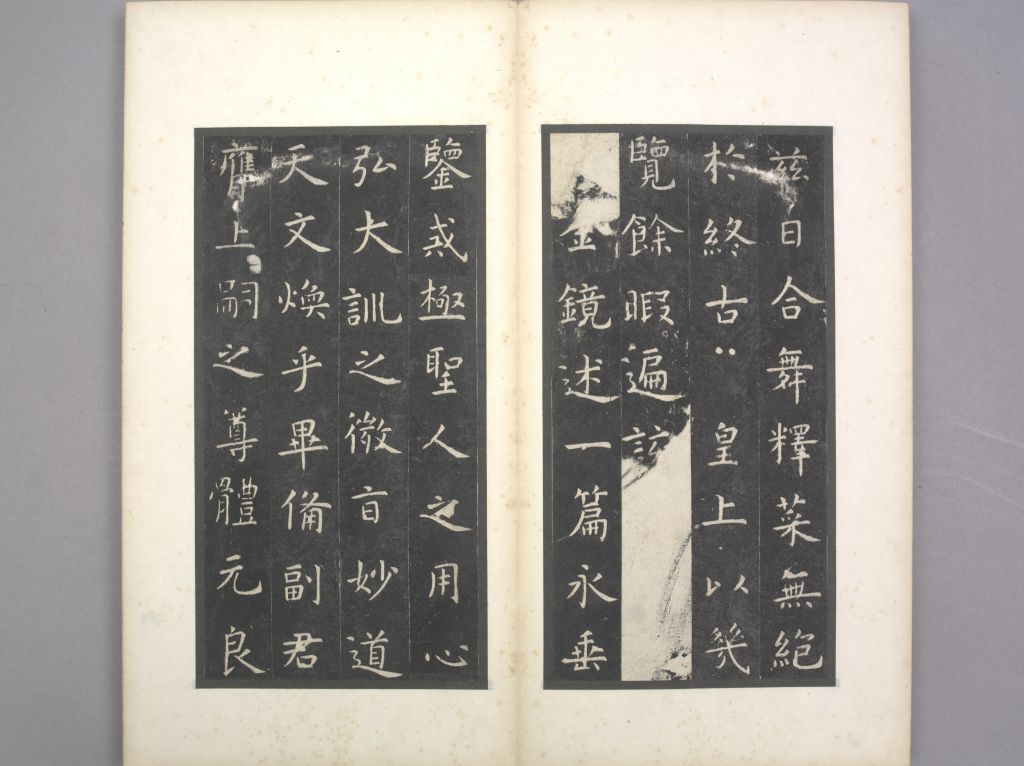 兹日合舞釋菜無絕
於終古皇上以幾
覽餘暇遍該
金鏡述一篇永垂
鑒戒極聖人之用心
弘大訓之微旨妙道
天文煥乎畢備副君
膺上嗣之尊體元良